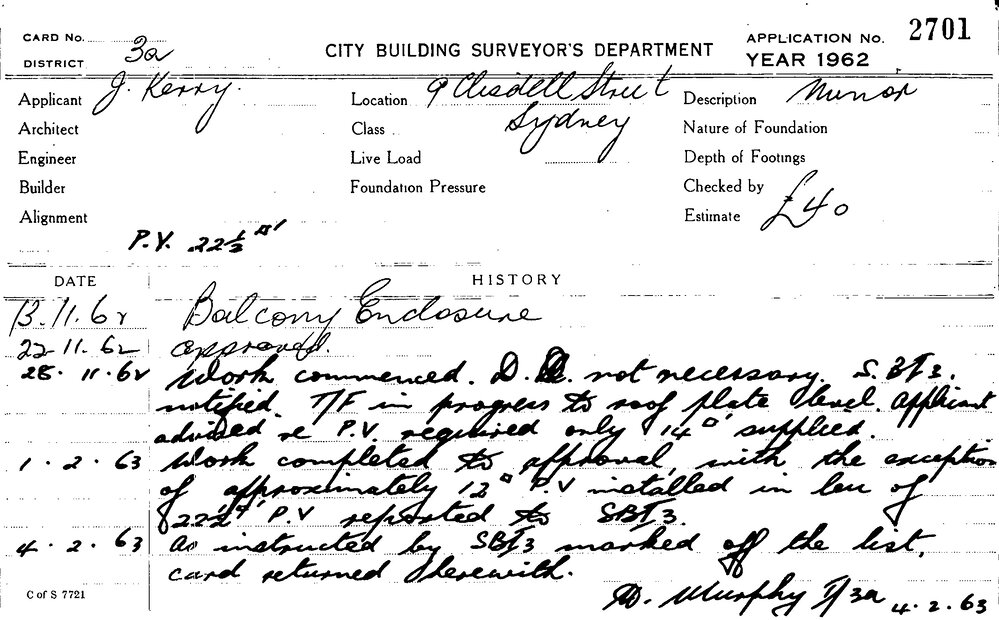 CARD No.
DISTRICT 3a
CITY BUILDING SURVEYOR'S DEPARTMENT
APPLICATION No. 2701
YEAR 1962
Applicant J. Kerry.
Location 9 Clisdell Street
Sydney
Description Minor
Architect
Class
Nature of Foundation
Engineer
Live Load
Depth of Footings
Builder
Foundation Pressure
Checked by
Alignment
Estimate £40
P.V. 22 1/3 □'
DATE
HISTORY
13.11.62 Balcony Enclosure
22.11.62 approved.
28.11.62 Work commenced. D. not necessary. S.BI3.
notified. T/F in progress to roof plate level. Applicant
advised re P.V. required only 14 □' supplied.
1.2.63 Work completed to approval, with the exception
of approximately 12 □' P.V installed in leu of
22½ □' P.V reported to SBI3.
4.2.63 As instructed by SBI3 marked off the list,
card returned herewith.
C of S 7721
D. Murphy I/3a 4.2.63